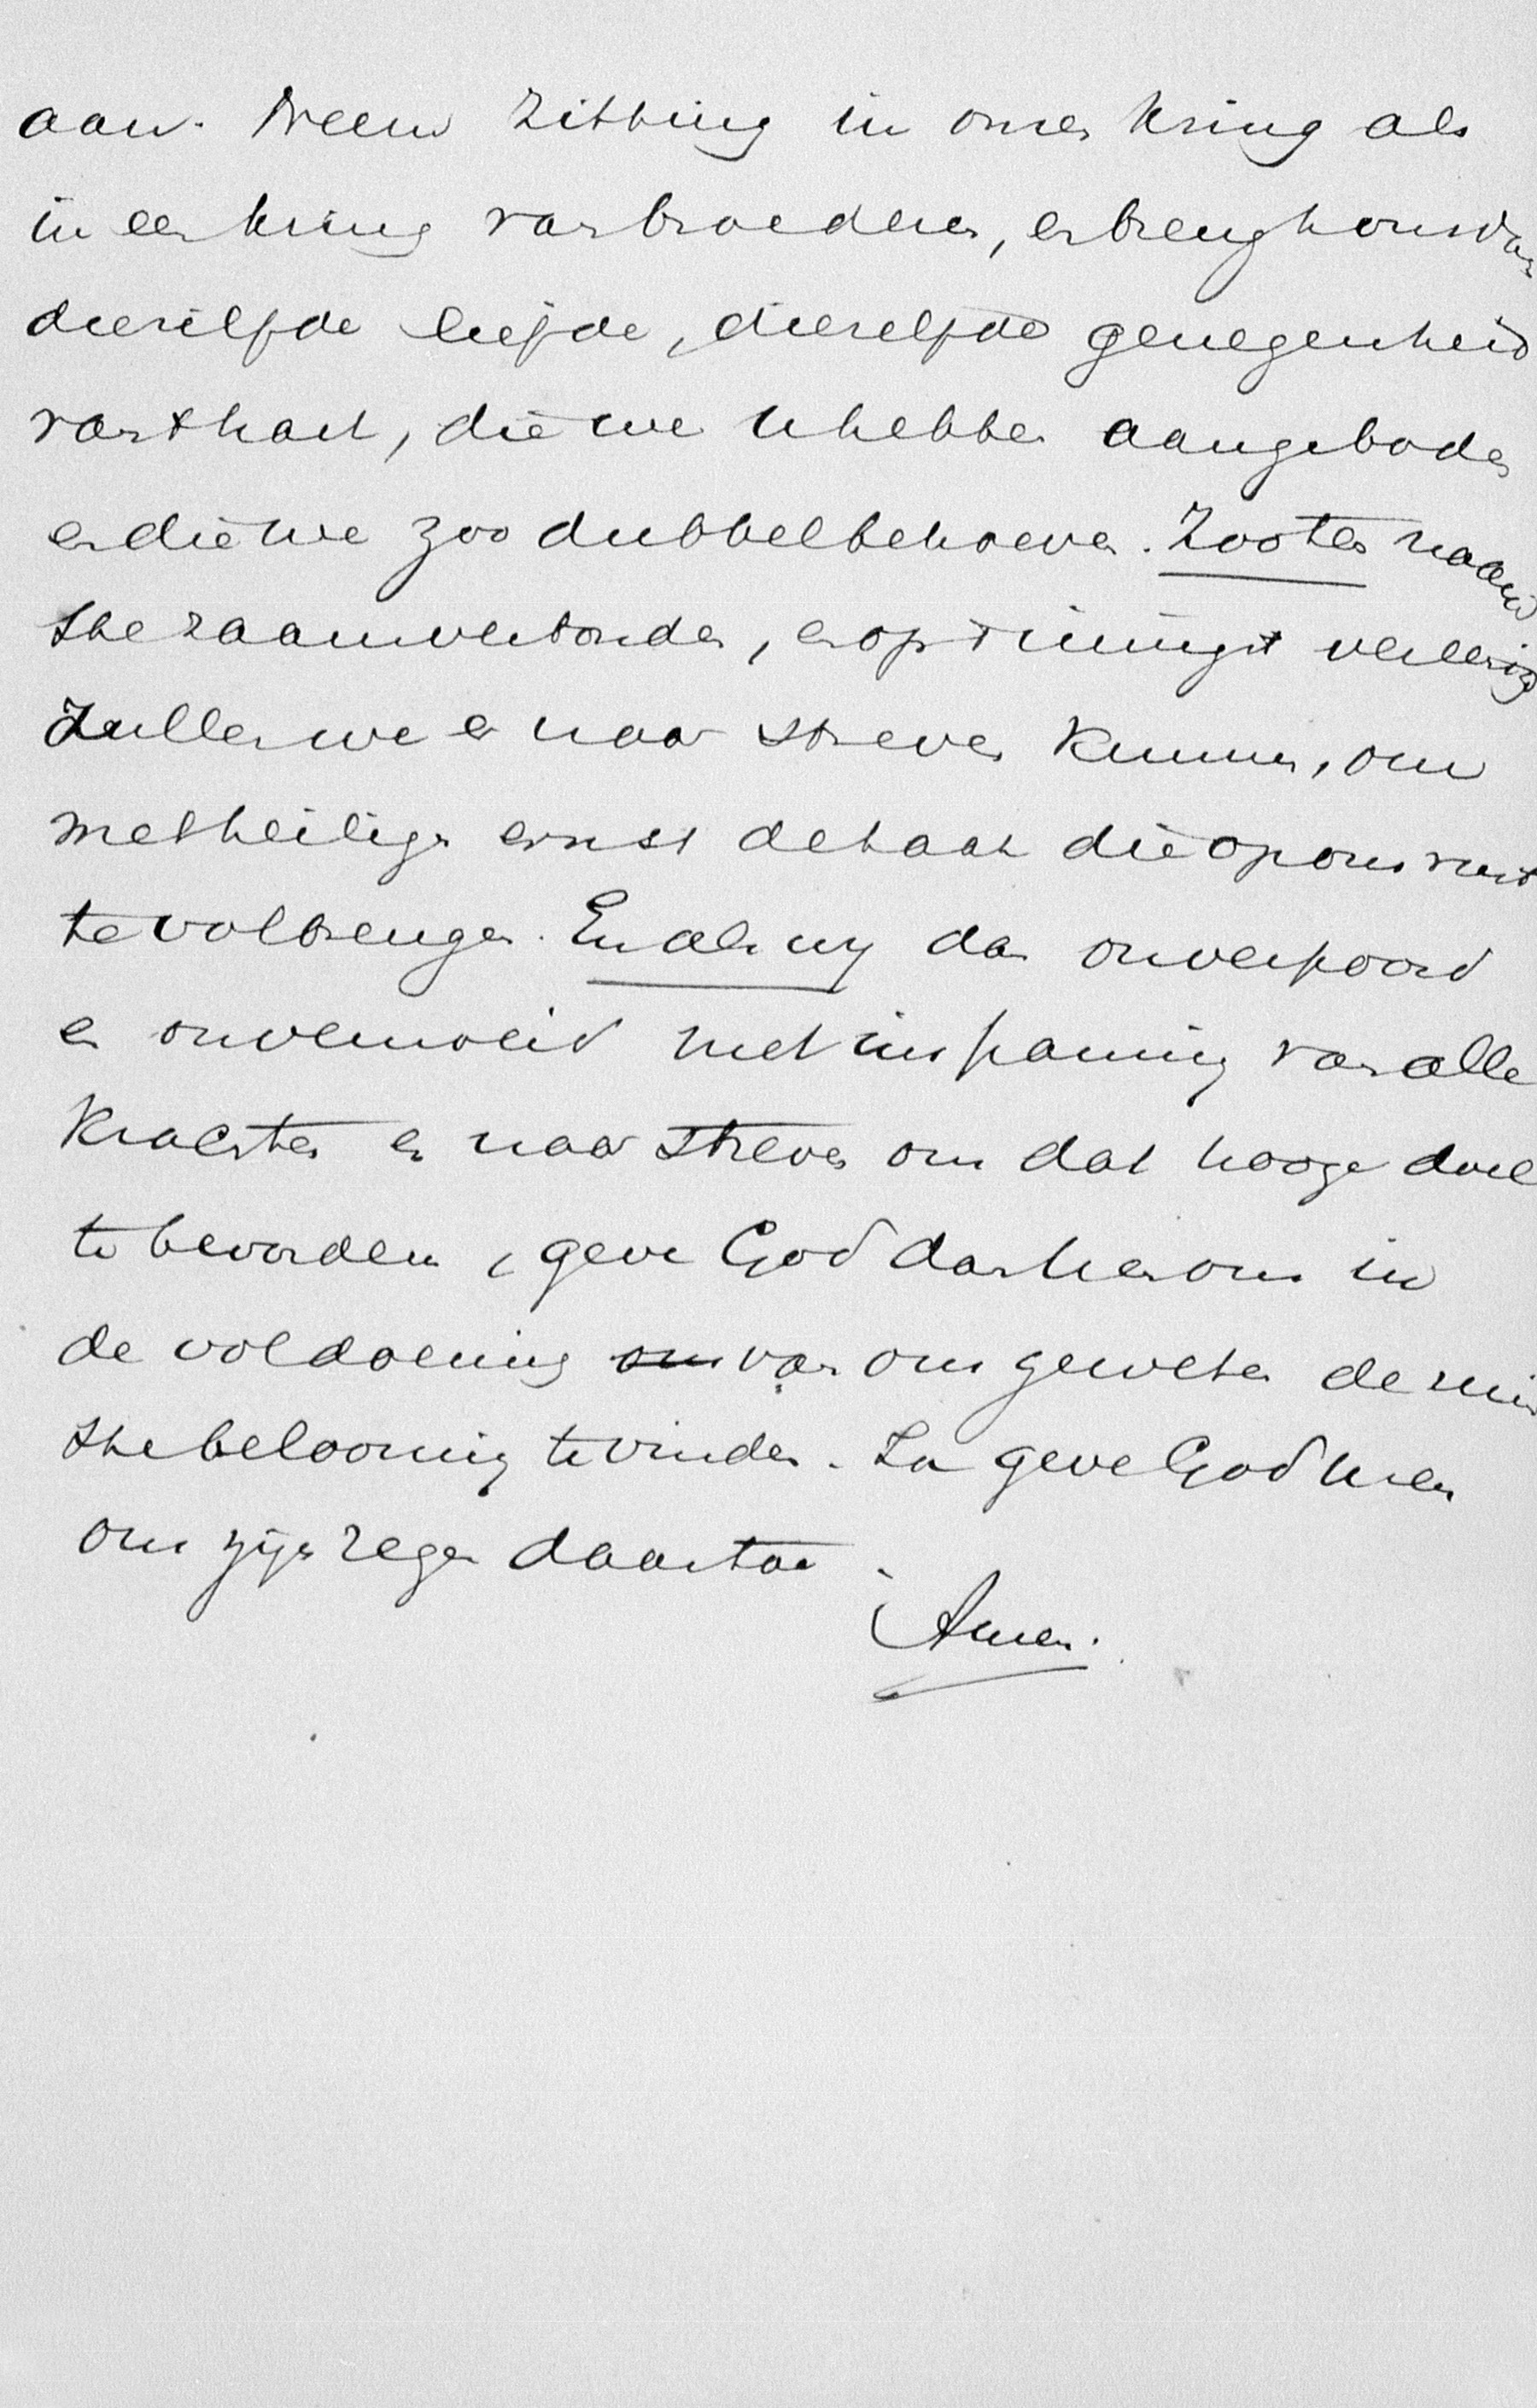 aan. Neem zitting in onzen kring als
in een kring van broederen, en breng ons van
diezelfde liefde, diezelfde genegenheid
van 't hart, die we U hebben aangeboden
en die we zoo dubbel behoeven. Zoo ten nauw
ste zaamverbonden, en op 't innigst vereenigd
zullen we er naar streven kunnen, om
met heiligen ernst de taak die op ons rust
te volbrengen. En als wij dan onverpoosd
en onvermoeid met inspanning van alle
krachten er naar streven om dat hooge doel
te bevorderen, geve God dan hier ons in
de voldoening ons van ons geweten de
ste belooning te vinden. Ja geve God hier
ons zijn zegen daartoe.
Amen.